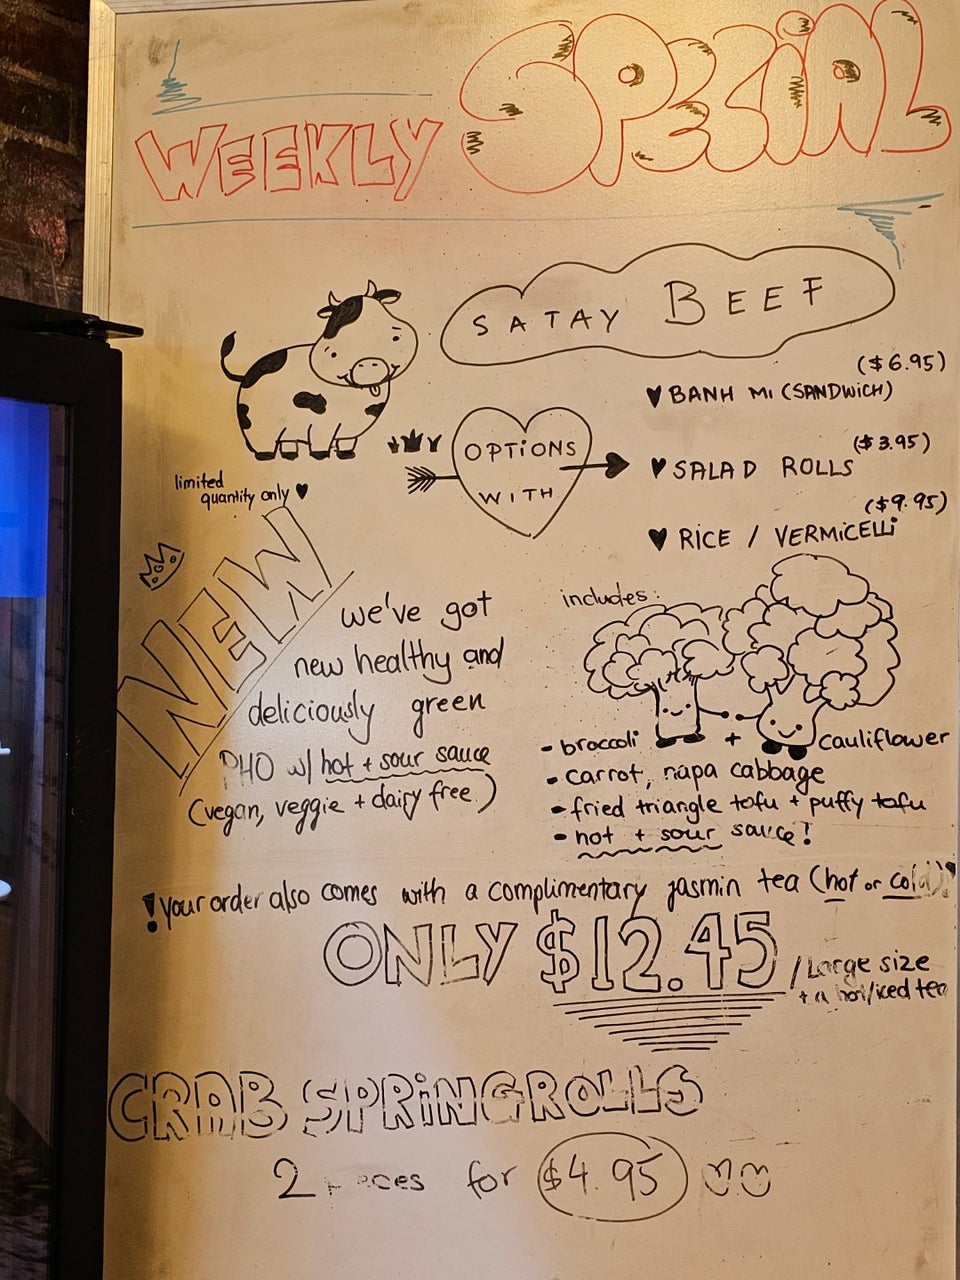 WEEKLY SPECIAL
SATAY BEEF
($6.95)
♥ BANH MI (SANDWICH)
OPTIONS
WITH
($3.95)
♥ SALAD ROLLS
($9.95)
♥ RICE / VERMICELLI
limited
quantity only ♥
NEW
we've got
new healthy and
deliciously green
PHO w/ hot + sour sauce
(vegan, veggie + dairy free.)
includes:
- broccoli + cauliflower
- carrot, napa cabbage
- fried triangle tofu + puffy tofu
- hot + sour sauce!
! your order also comes with a complimentary jasmin tea (hot or cold)!
ONLY $12.45 / Large size
+ a hot/iced tea
CRAB SPRING ROLLS
2 pieces for $4.95